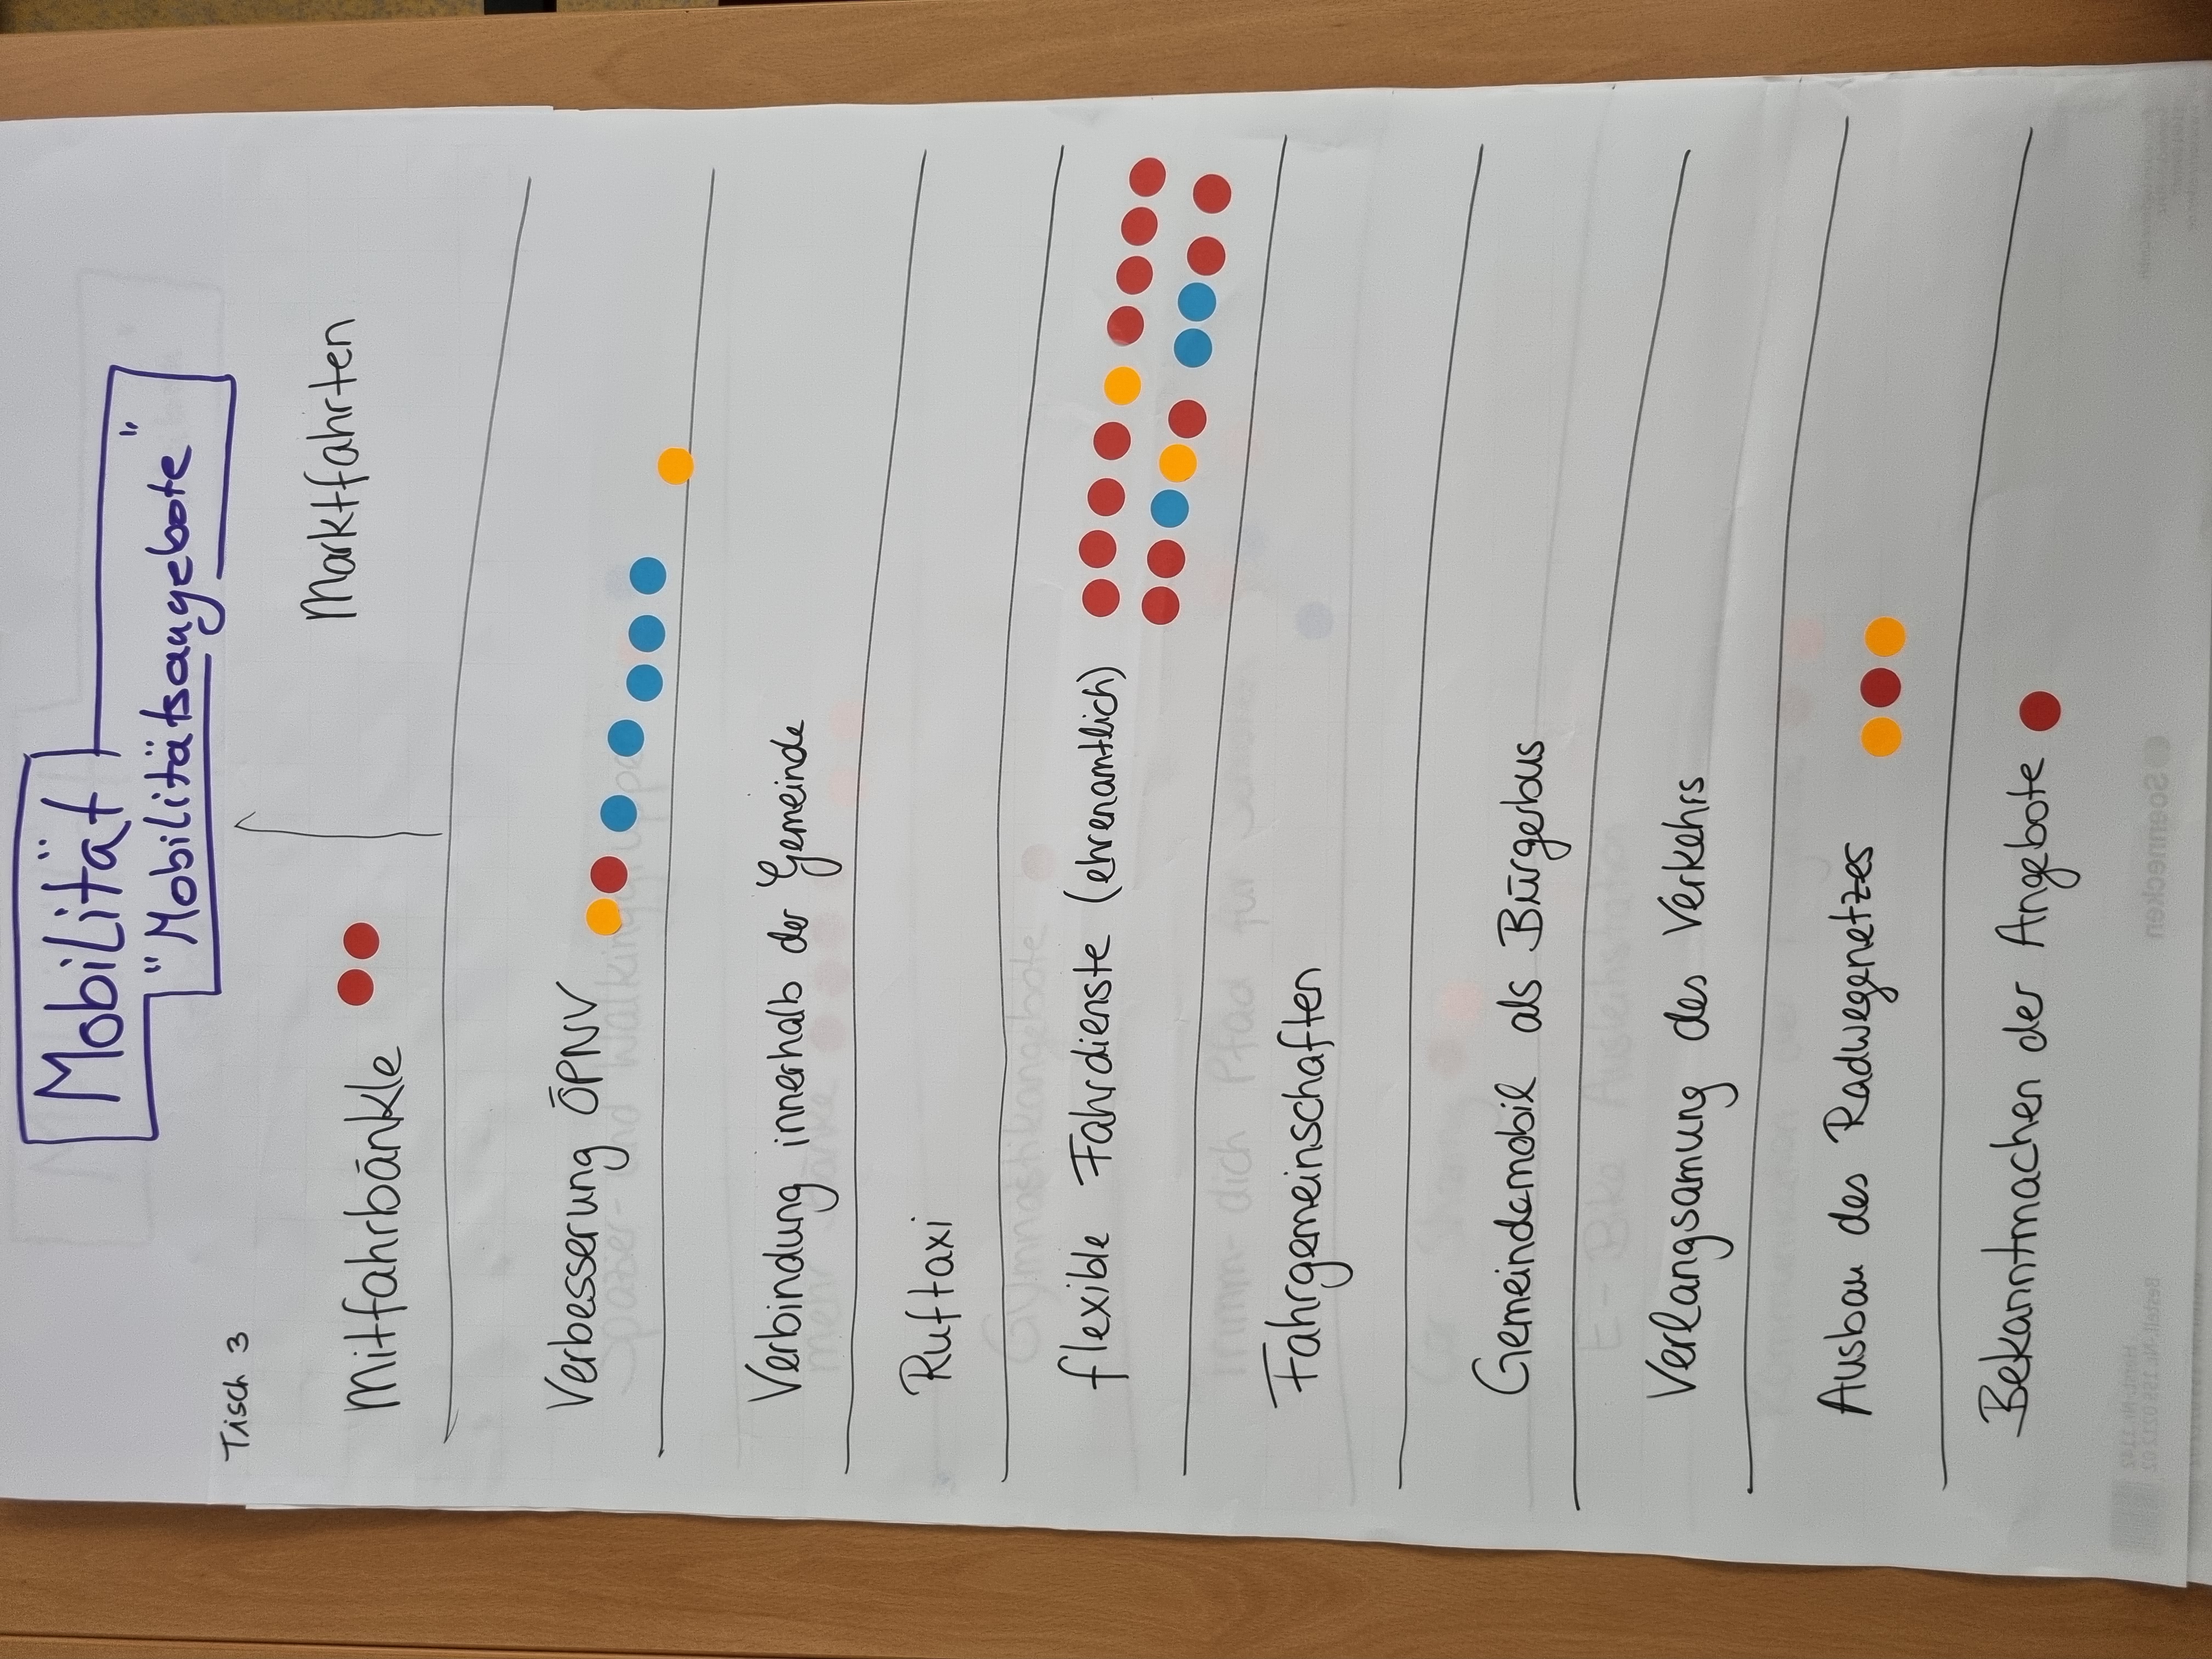 Mobilität
"Mobilitätsangebote"
Tisch 3
Mitfahrbänkle
Marktfahrten
Verbesserung ÖPNV
Verbindung innerhalb der Gemeinde
Ruftaxi
flexible Fahrdienste (ehrenamtlich)
Fahrgemeinschaften
Gemeindemobil als Bürgerbus
Verlangsamung des Verkehrs
Ausbau des Radwegenetzes
Bekanntmachen der Angebote